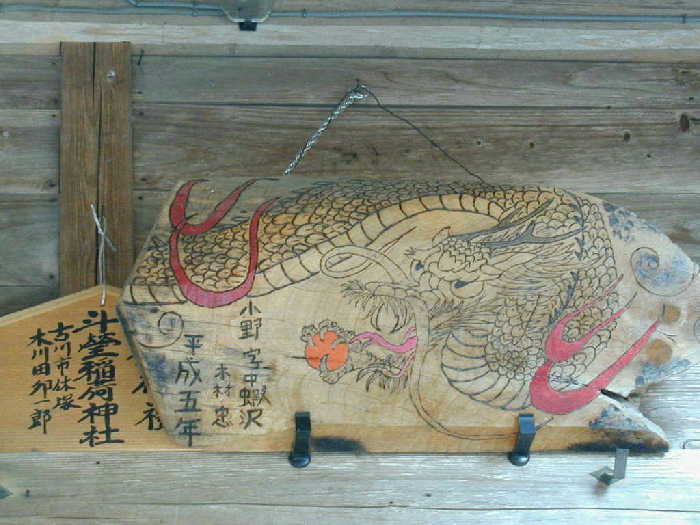 小野字中蝦沢
木村忠
平成五年
斗瑩稲荷神社
古川市休塚
木川田卯一郎